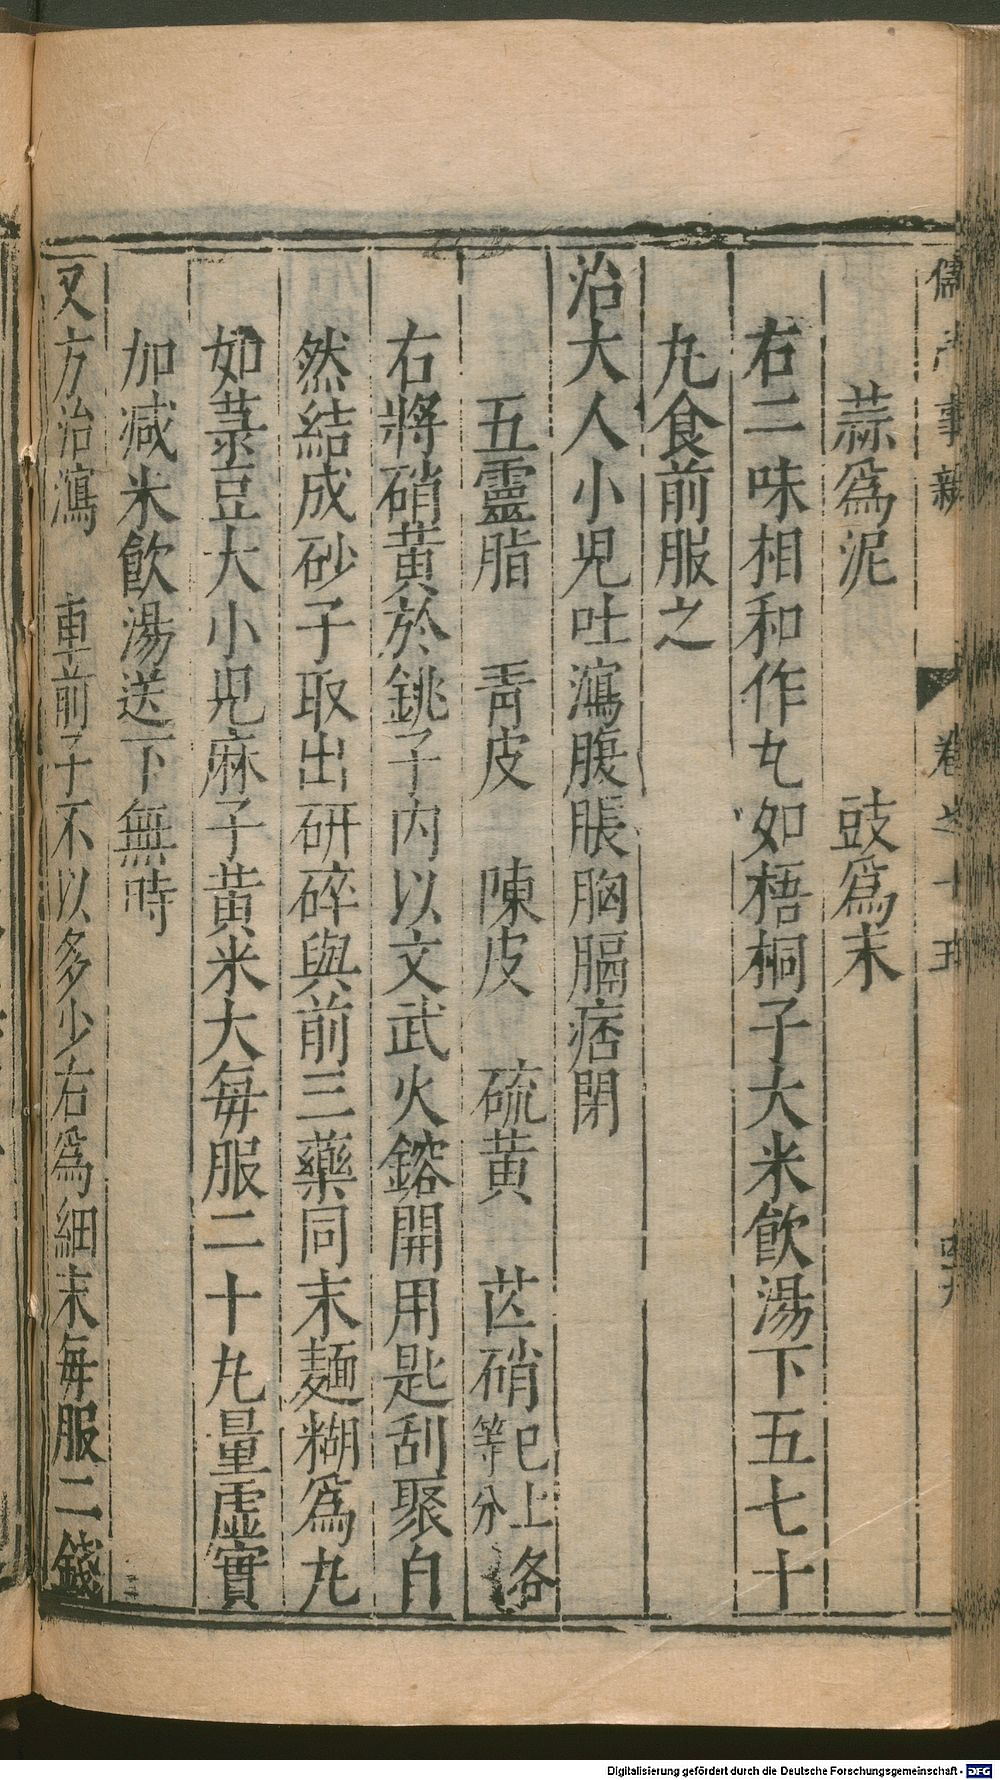 儒門事親 卷之十五
蒜爲泥 豉爲末
右二味相和作丸如梧桐子大米飲湯下五七十
丸食前服之
治大人小兒吐瀉腹脹胸膈痞閉
五靈脂 靑皮 陳皮 硫黄 芒硝已上各等分
右將硝黄於銚子内以文武火鎔開用匙刮聚自
然結成砂子取出研碎與前三藥同末麵糊爲丸
如菉豆大小兒麻子黄米大毎服二十丸量虚實
加减米飲湯送下無時
又方治瀉 車前子不以多少右爲細末毎服二錢
Digitalisierung gefördert durch die Deutsche Forschungsgemeinschaft - DFG